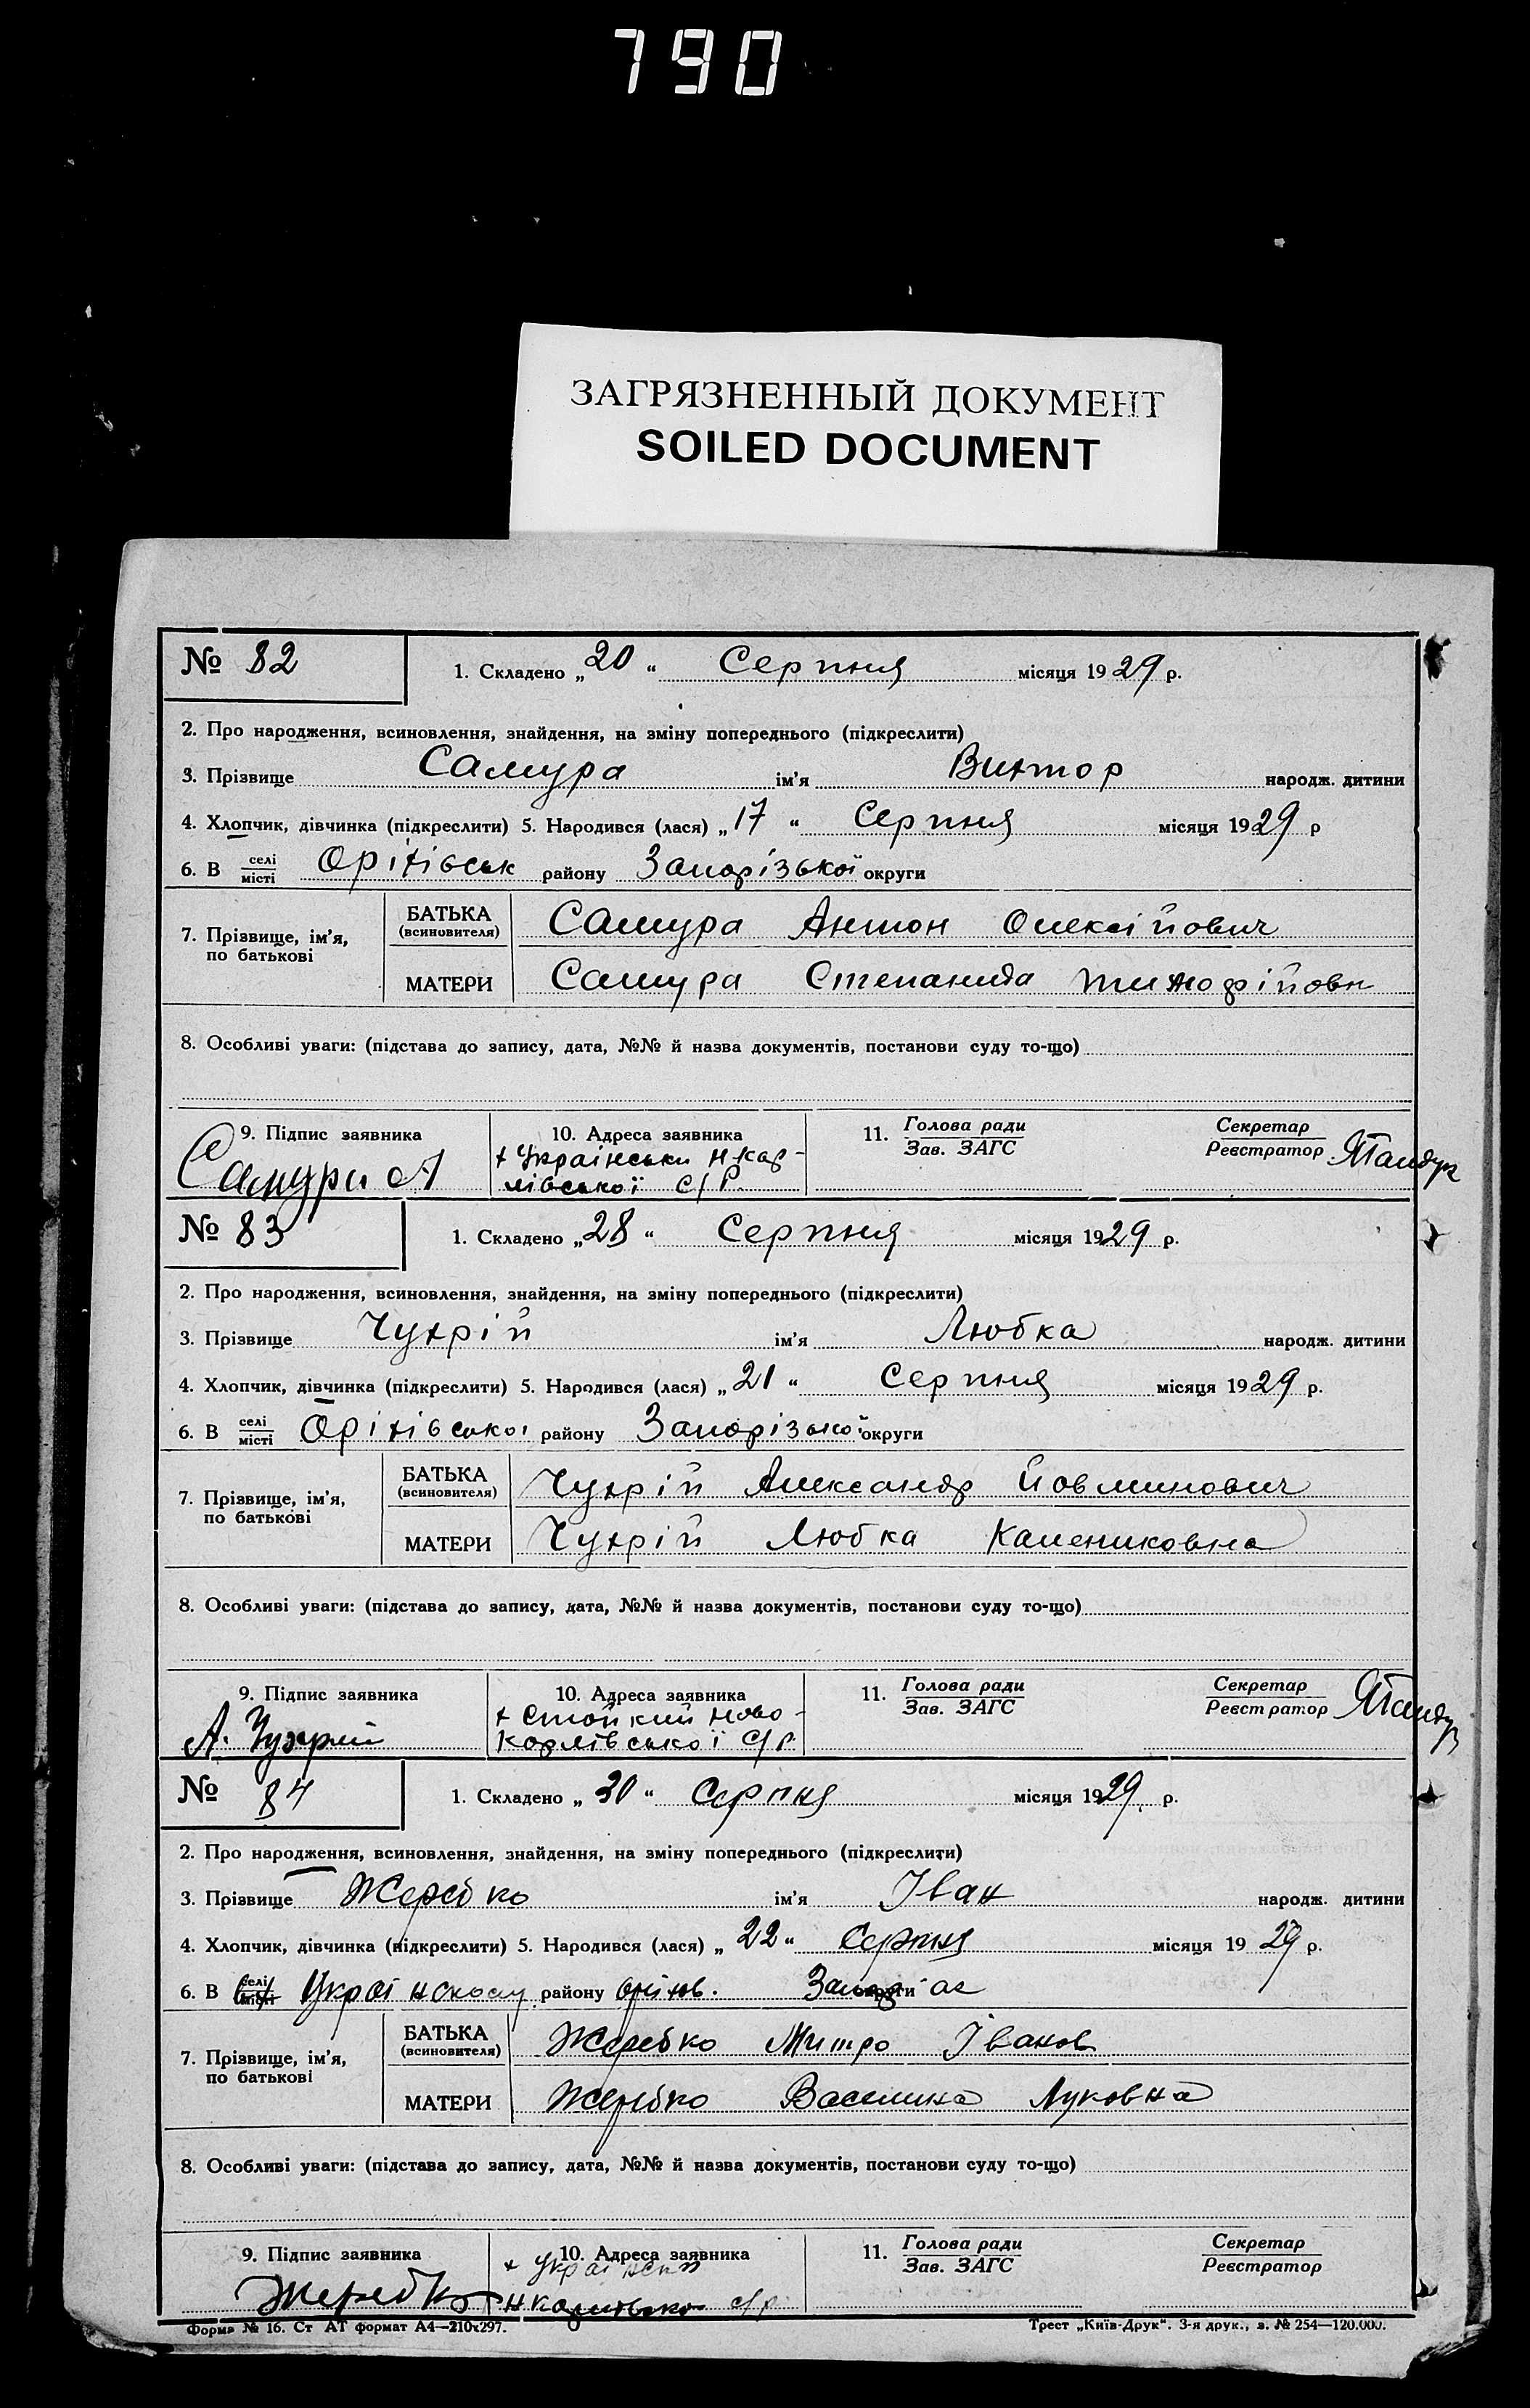 790
ЗАГРЯЗНЕННЫЙ ДОКУМЕНТ
SOILED DOCUMENT
№ 82
1. Складено „20“ Серпня місяця 1929 р.
2. Про народження, всиновлення, знайдення, на зміну попереднього (підкреслити)
3. Прізвище Самура ім’я Виктор народж. дитини
4. Хлопчик, дівчинка (підкреслити) 5. Народився (лася) „17“ Серпня місяця 1929 р
6. В селі місті Оріхівськ району Запорізької округи
7. Прізвище, ім’я, по батькові
БАТЬКА (всиновителя) Самура Антон Олексійович
МАТЕРИ Самура Степанида Тимофійовн
8. Особливі уваги: (підстава до запису, дата, №№ й назва документів, постанови суду то-що)
9. Підпис заявника
Самура А
10. Адреса заявника
х Українськи Н Кар-
лівської С/Р.
11. Голова ради
Зав. ЗАГС
Секретар
Реєстратор
№ 83
1. Складено „28“ Серпня місяця 1929 р.
2. Про народження, всиновлення, знайдення, на зміну попереднього (підкреслити)
3. Прізвище Чухрій ім’я Любка народж. дитини
4. Хлопчик, дівчинка (підкреслити) 5. Народився (лася) „21“ Серпня місяця 1929 р.
6. В селі місті Оріхівської району Запорізької округи
7. Прізвище, ім’я, по батькові
БАТЬКА (всиновителя) Чухрій Александр
МАТЕРИ Чухрій Любка
8. Особливі уваги: (підстава до запису, дата, №№ й назва документів, постанови суду то-що)
9. Підпис заявника
А. Чухрій
10. Адреса заявника
х Стойкий Ново-
Карлівської С/р.
11. Голова ради
Зав. ЗАГС
Секретар
Реєстратор
№ 84
1. Складено „30“ Серпня місяця 1929 р.
2. Про народження, всиновлення, знайдення, на зміну попереднього (підкреслити)
3. Прізвище Жеребко ім’я Іван народж. дитини
4. Хлопчик, дівчинка (підкреслити) 5. Народився (лася) „22“ Серпня місяця 1929 р.
6. В селі місті Українському району Оріхов. округи
7. Прізвище, ім’я, по батькові
БАТЬКА (всиновителя) Жеребко Митро Іванов
МАТЕРИ Жеребко Василина Луковна
8. Особливі уваги: (підстава до запису, дата, №№ й назва документів, постанови суду то-що)
9. Підпис заявника
Жеребко
10. Адреса заявника
11. Голова ради
Зав. ЗАГС
Секретар
Реєстратор
Форма № 16. Ст АТ формат А4—210х297.
Трест „Київ-Друк“. 3-я друк., з. № 254—120.000.